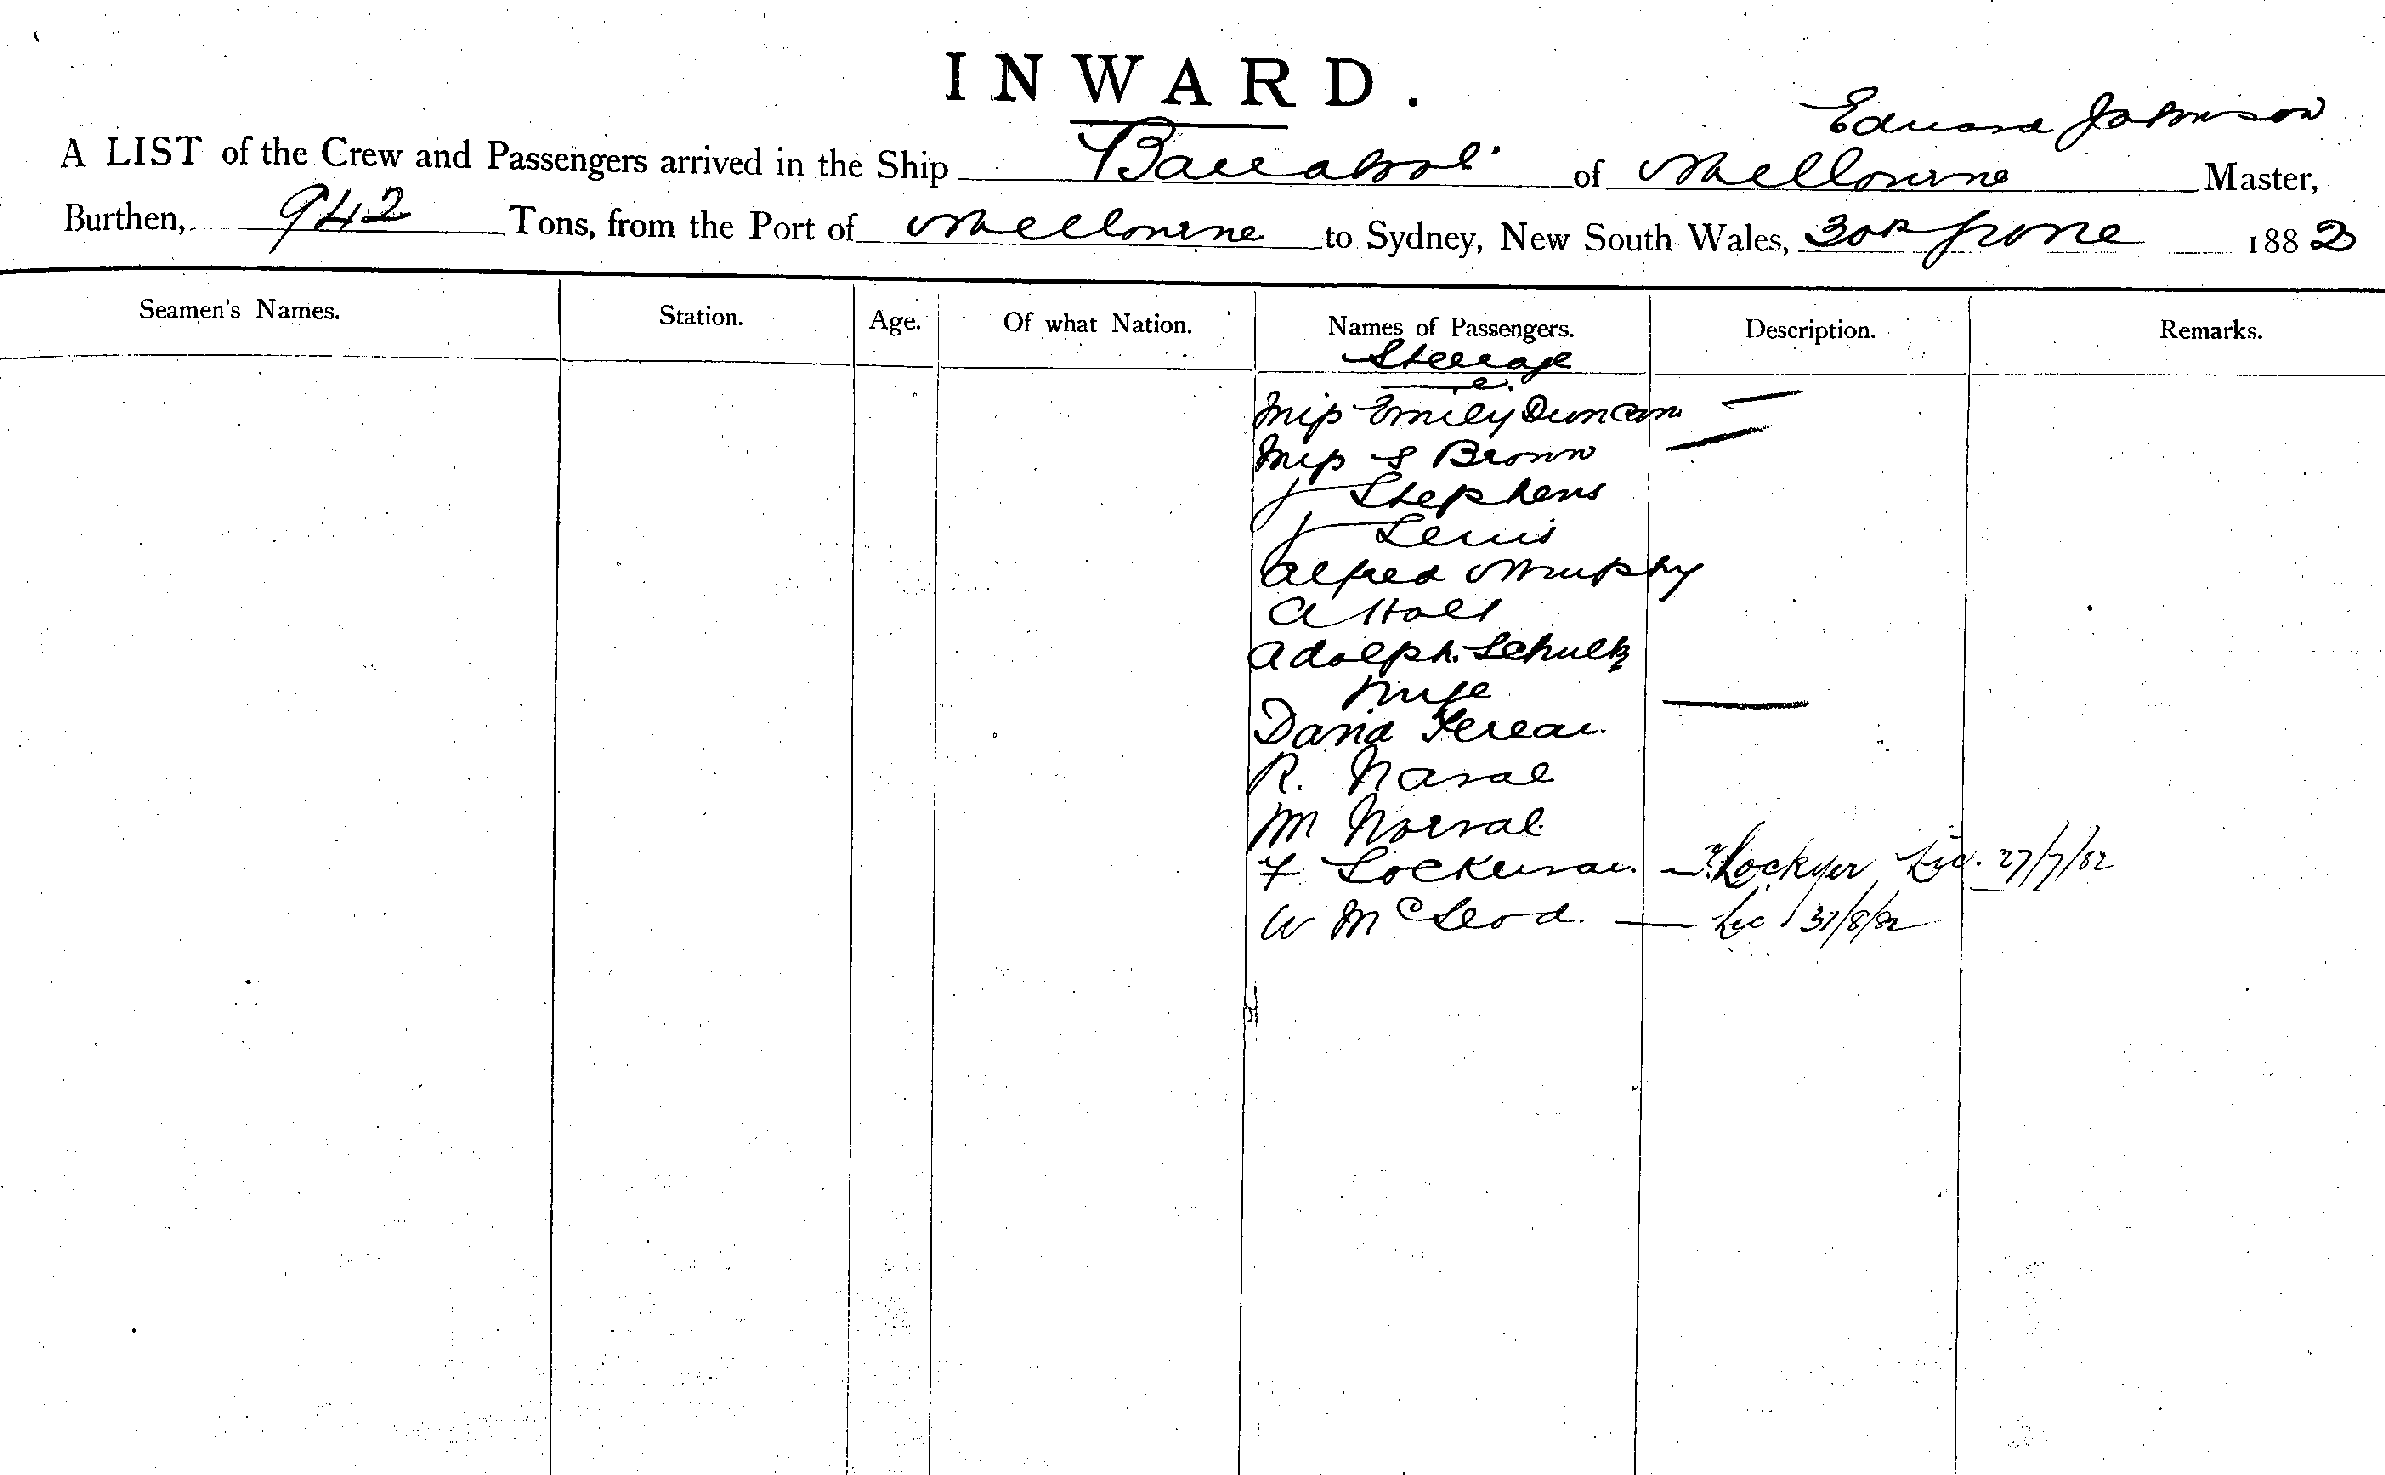 INWARD.
Edward Johnson
A LIST of the Crew and Passengers arrived in the Ship Barrabool of Melbourne Master,
Burthen, 942 Tons, from the Port of Melbourne to Sydney, New South Wales, 30th June 1882
Seamen's Names. Station. Age. Of what Nation. Names of Passengers. Description. Remarks.
Steerage
Miss Emily Duncan —
Miss S Brown —
J Stephens
J Lewis
Alfred Murphy
A Holt
Adolph Schultz
Wife —
David
R. Naval
M Norval
F — F. Lockyer Lic. 27/7/82
W McLeod — Lic 31/8/82